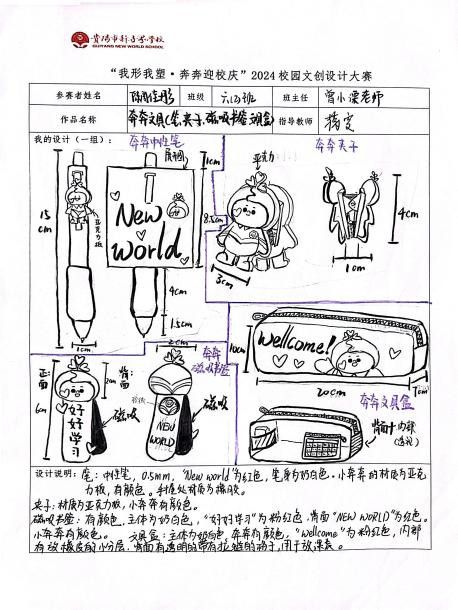 贵阳市新世界学校
GUIYANG NEW WORLD SCHOOL
“我形我塑·奔奔迎校庆”2024校园文创设计大赛
参赛者姓名 班级 六(3)班 班主任 曾小栗老师
作品名称 奔奔文具(笔、夹子、磁吸书签、文具盒) 指导教师
我的设计(一组): 奔奔中性笔 亚克力 奔奔夹子
1cm
15cm
亚克力板
New world
8.5cm
4cm
3cm
1cm
4cm
1.5cm
1cm
奔奔磁吸书签
2cm
正面
背面
6cm
2cm
磁吸
磁吸
好好学习
NEW WORLD
10cm
Wellcome!
20cm
7cm
奔奔文具盒
背面+内部
设计说明:笔:中性笔,0.5mm,“New world”为红色,笔身为奶白色。小奔奔的材质为亚克
力板,有颜色。手握处材质为橡胶。
夹子:材质为亚克力板,小奔奔有颜色。
磁吸书签:有颜色,主体为奶白色,“好好学习”为粉红色,背面“NEW WORLD”为红色。
小奔奔有颜色。 文具盒:主体为奶白色,奔奔有颜色,“wellcome”为粉红色,内部
有放橡皮的小分层,背面有透明的带有拉链的袋子,用于放课表。